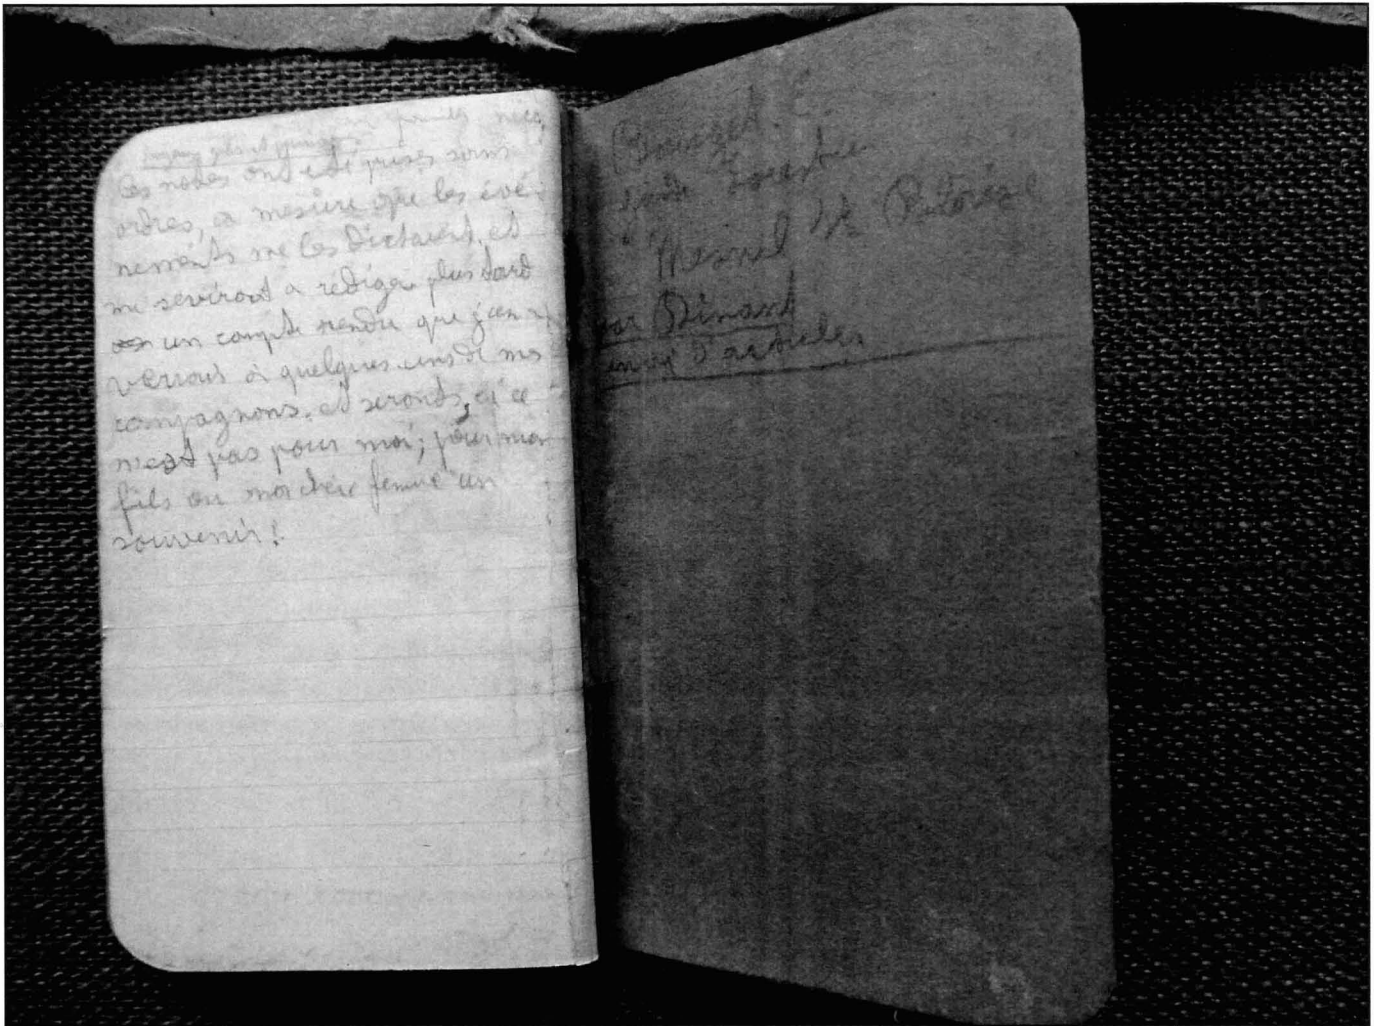 Ces notes ont été prises sans
ordres, a mesure que les évé-
nements me les dictaient, et
me seviront a rédiger plus tard
un compte rendu que j'en
verrais à quelques uns de mes
compagnons, et seronts, si ce
n'est pas pour moi; pour mon
fils ou ma cher femme un
souvenir!
garde forestier
Mesnil
par Dinant
envoi d'articles